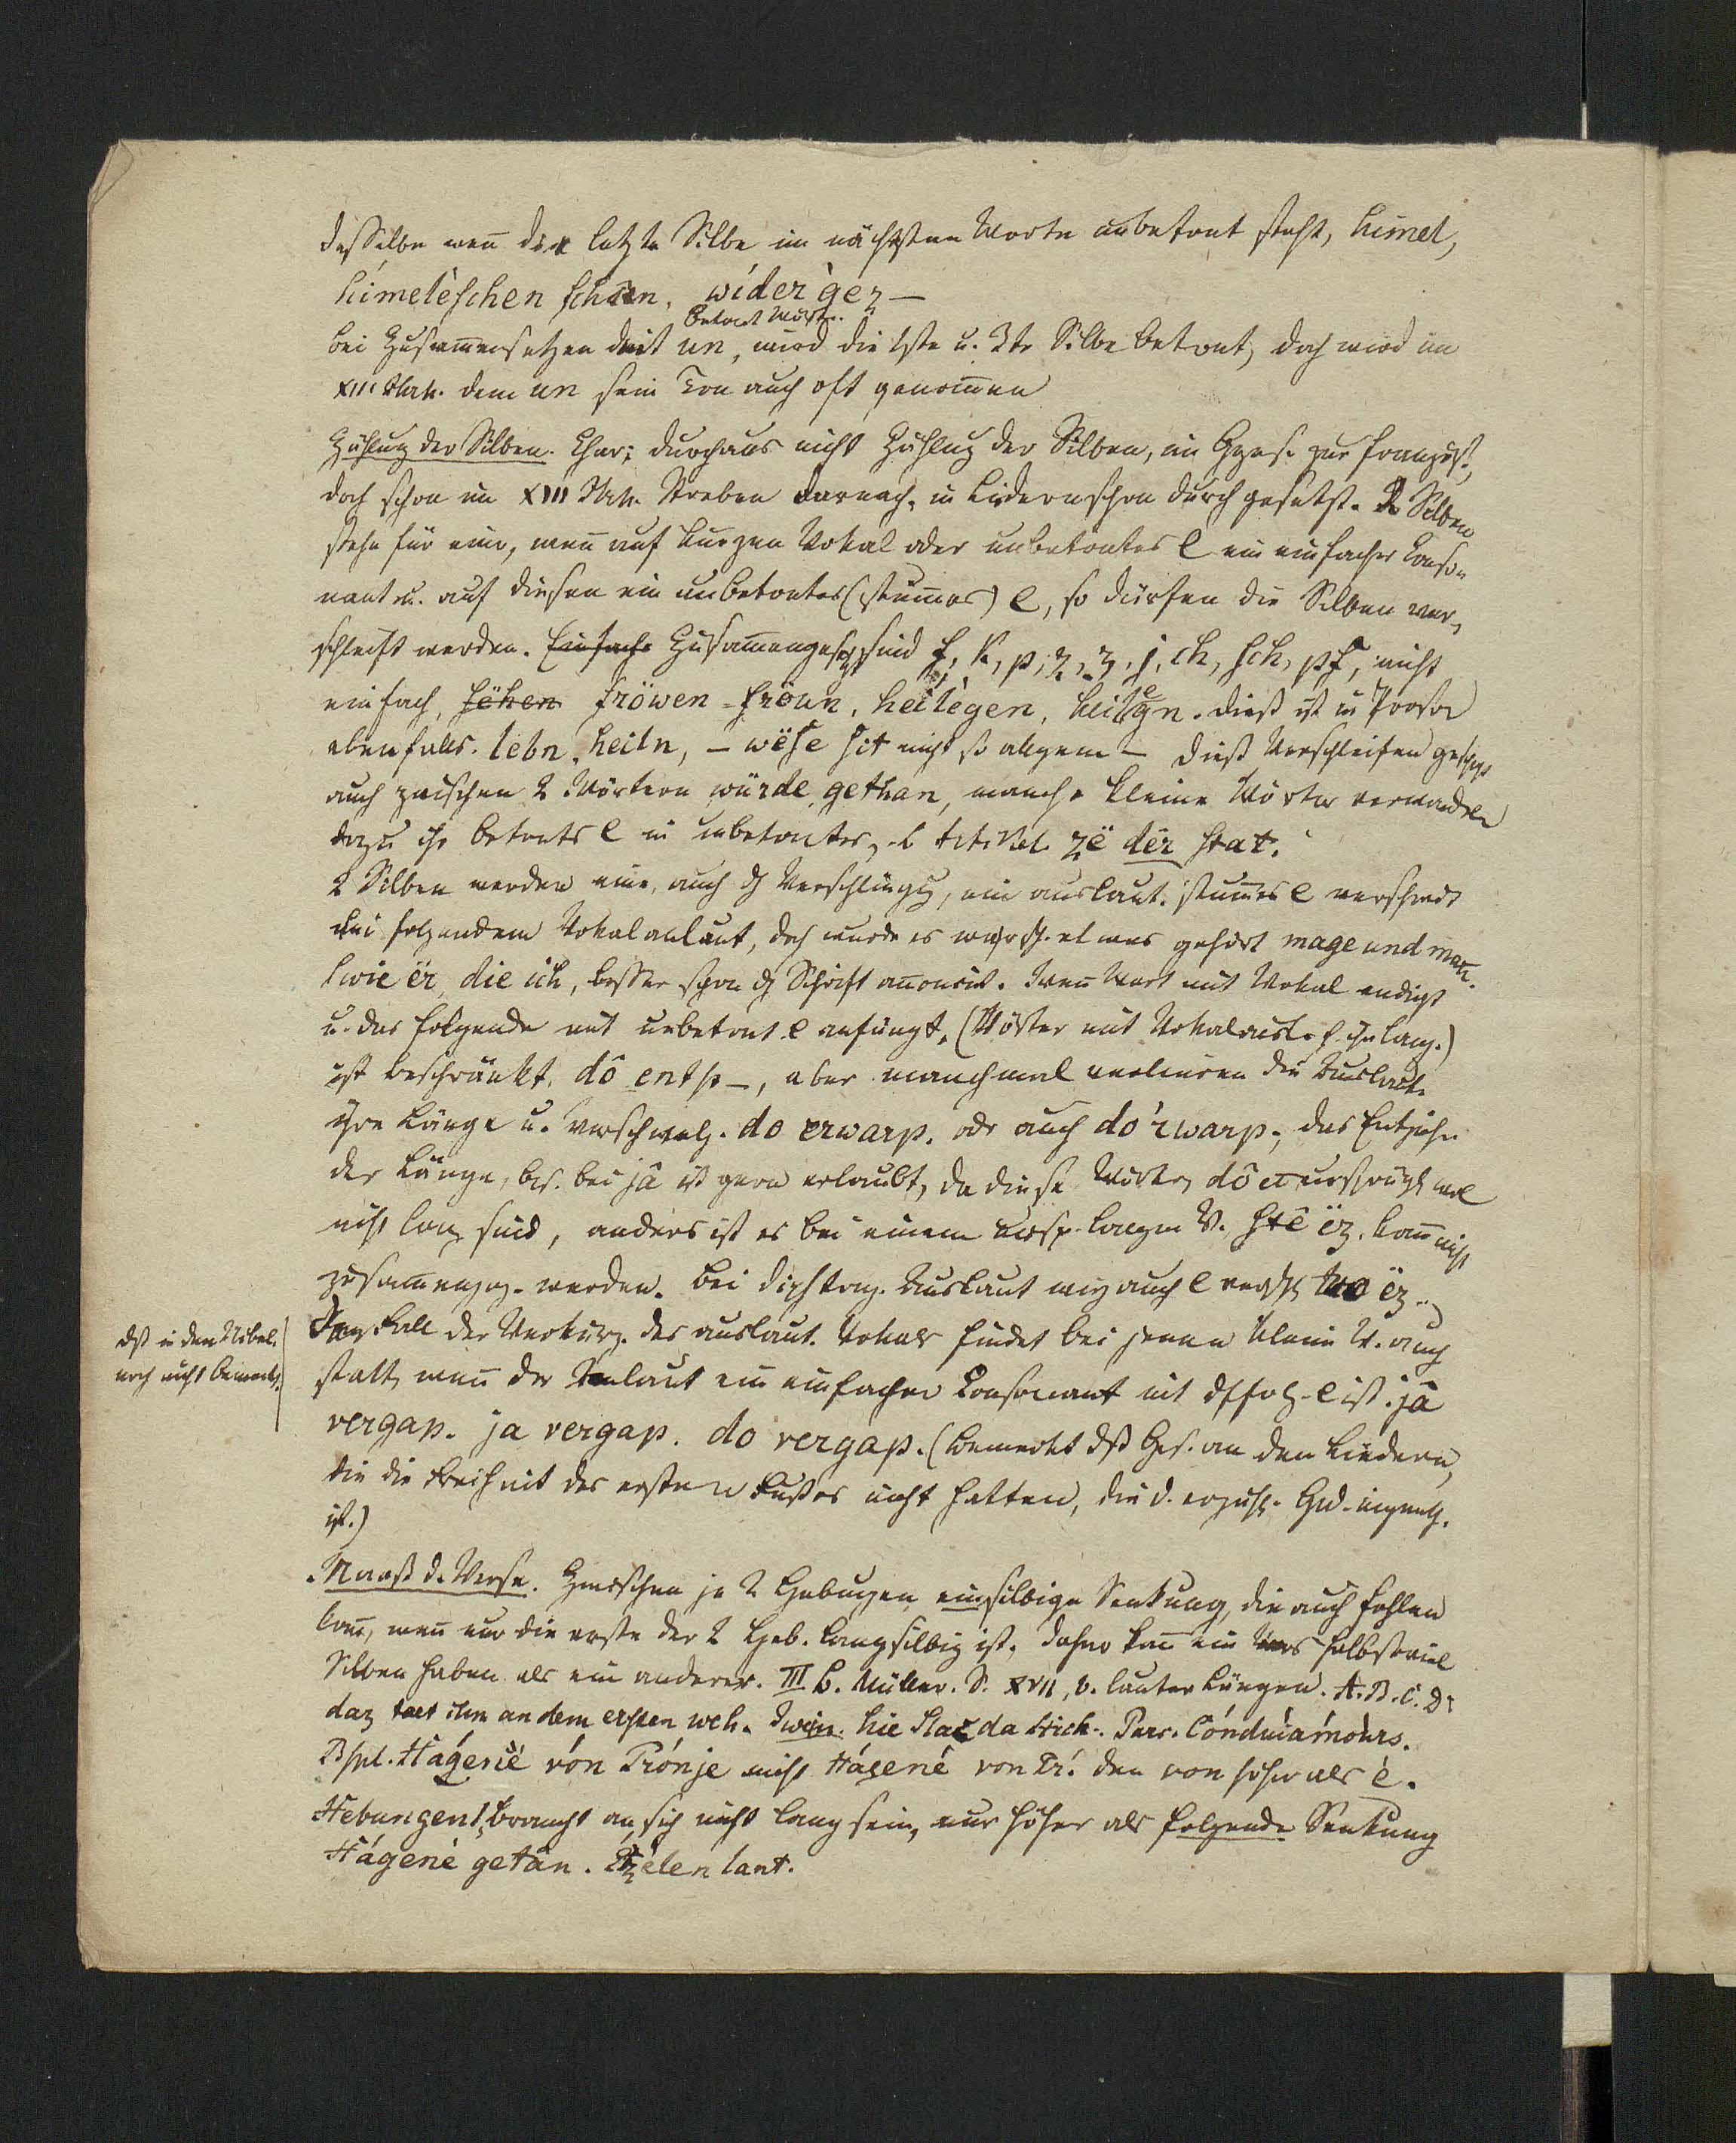 desselbe wen̄ die letzte Silbe im nächsten Worte unbetont steht, himel,
himelèschen schîn, wíder ger —
betont Wört.
bei Zusam̄ensetzen mit un, wird die 1ste u. 3te Silbe betont, doch wird im
XIII Jhrh. dem un sein Ton auch oft genom̄en
Zählung der Silben. Char; durchaus nicht Zählung der Silben, im Ggens. zur französ,
doch schon im XIII Jhrh. Streben darnach, in Liedern schon durch gesetzt. 2 Silben
stehn für eine, wen̄ auf kurzen Vokal oder unbetontes e ein einfacher Conso-
nant u. auf diesen ein unbetontes (stum̄es) e, so dürfen die Silben ver-
schleift werden. Einfache Zusam̄enges. sind f, k, p, z, ʒ, j, ch, sch, pf, nicht
einfach, sëhen fröwen - fröun, heilègen, heilgn. dieß ist in Prosa
ebenfalls. lebn, heiln, — wëse sit nicht so allgem — dieß Verschleifen geschieht
auch zwischen 2 Wörtern würde gethan, manche kleine Wörter verwandeln
dazu ihr betontes e in unbetontes, zë dër stat.
2 Silben werden eine, auch d Verschlingg, ein auslaut. stum̄es e verschwindet
bei folgendem Vokalanlaut, doch wurde es etwas gehört mage und man̄.
swie ër, die ich, besser schon d Schrift Wen̄ Wort mit Vokal endigt
u. das folgende mit unbetont e anfängt, (Wörter mit Vokalausl. s. ihn lang.)
ist beschränkt, dô entsp —, aber manchmal verlieren die Auslaute
ihre Länge u. verschmelz. do erwarp. odr auch do'rwarp; das Entziehn
der Länge, bes. bei jâ ist gern erlaubt, da diese Wörter dô et ursprüngl wol
nicht lang sind, anders ist es bei einem ursp. langen V. stê ëz. kan̄ nicht
zusam̄engez. werden. Bei diphtong. Auslaut mag auch e
dß in den Nibel.
noch nicht bemerkt
Fall der Verkürz. des auslaut. Vokals findet bei jenen kleinen W. auch
statt, wen̄ der Anlaut ein einfacher Consonant mit folg. e ist. jâ
vergap. ja vergap. do vergap. (bemerkt dß Ges. an den Liedern,
die die Freiheit des ersten Fußes nicht hatten, die d. erzähl. Ged. eigenth.
ist.)
Maaß d. Verse. Zwischen je 2 Hebungen einsilbige Senkung, die auch fehlen
kan̄, wen̄ nur die erste der 2 Heb. langsilbig ist, daher kan̄ ein Vers halbsoviel
Silben haben als ein anderer. III b. Müller. S. XVII, b. lauter Längen. A. B. C. D.
daz taet ihm an dem ersten weh. Iwein. hie slac da stich. Parc. Cóndwíramóurs.
Bspl. Hágenè vón Trónje nicht Hágenè von Tr. den von höher als è.
Hebungen, braucht an sich nicht lang sein, nur höher als folgende Senkung
Hágenè getân. Etzelen lant.